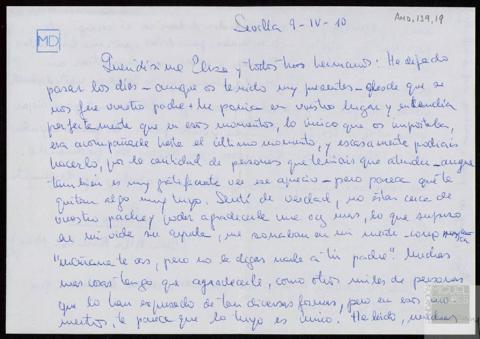 AMD, 139, 19
Sevilla 9-IV-10
MD
Queridísima Elisa y todos tus hermanos: He dejado
pasar los días - aunque os he tenido muy presentes - desde que se
nos fue vuestro padre. Me ponía en vuestro lugar y entendía
perfectamente que en esos momentos, lo único que os importaba,
era acompañarle hasta el último momento, y escasamente podíais
hacerlo, por la cantidad de personas que teníais que atender - aunque
también es muy gratificante ver ese aprecio - pero parece que te
quitan algo muy tuyo. Sentí de verdad, no estar cerca de
vuestro padre y poder agradecerle una vez más, lo que supuso
en mi vida su ayuda, me sonaban en mi mente como
"mañana te vas, pero no le digas nada a tu padre". Muchas
más cosas tengo que agradecerle, como otros miles de personas
que lo han expresado de tan diversas formas, pero en esos mo-
mentos, te parece que lo tuyo es único. He leído, muchas